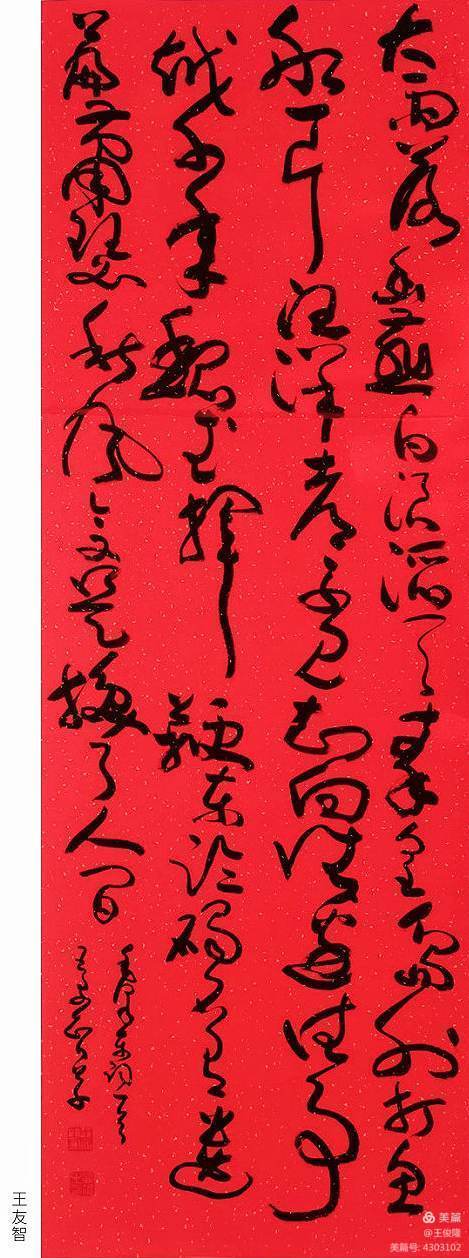 大雨落幽燕白浪滔天秦皇岛外打鱼
船一片汪洋都不见知向谁边往事
越千年魏武挥鞭东临碣石有遗
篇萧瑟秋风今又是换了人间
毛泽东词一首
王友智
王友智
美篇
@王俊隆
美篇号: 4303102